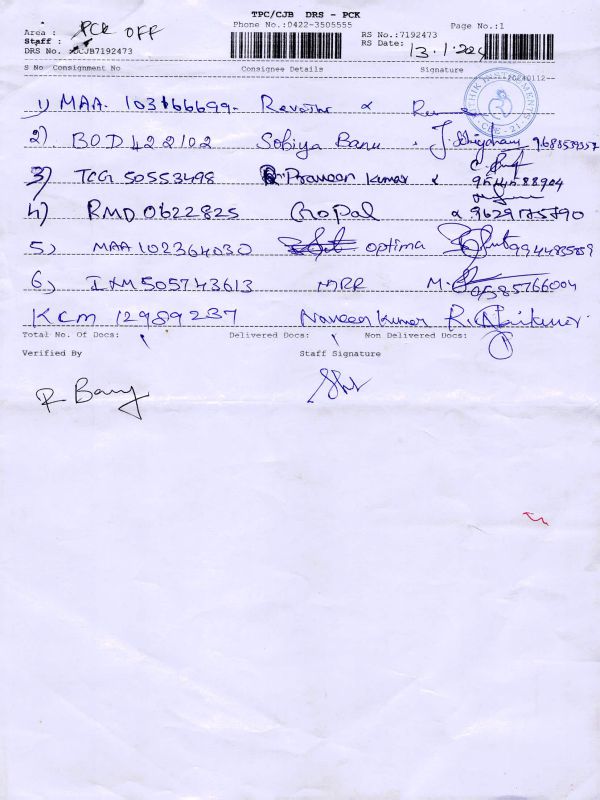 TPC/CJB DRS - PCK
Phone No.:0422-3505555 Page No.:1
Area : PCK OFF RS No.:7192473
Staff : RS Date: 13.1.2024
DRS No. :DCJB7192473
S No Consignment No Consignee Details Signature
20240112--
1) MAA. 103166699. Revathi
2) BOD 422102 Sobiya Banu
3) TCG 50553498 Praveen Kumar 9514588904
4) RMD 0622825 Gopal 9629175790
5) MAA 102364030 optima 9944835859
6) IXM 505743613 MRR 9585766004
KCM 12989237 Naveen Kumar
Total No. Of Docs: Delivered Docs: Non Delivered Docs:
Verified By Staff Signature